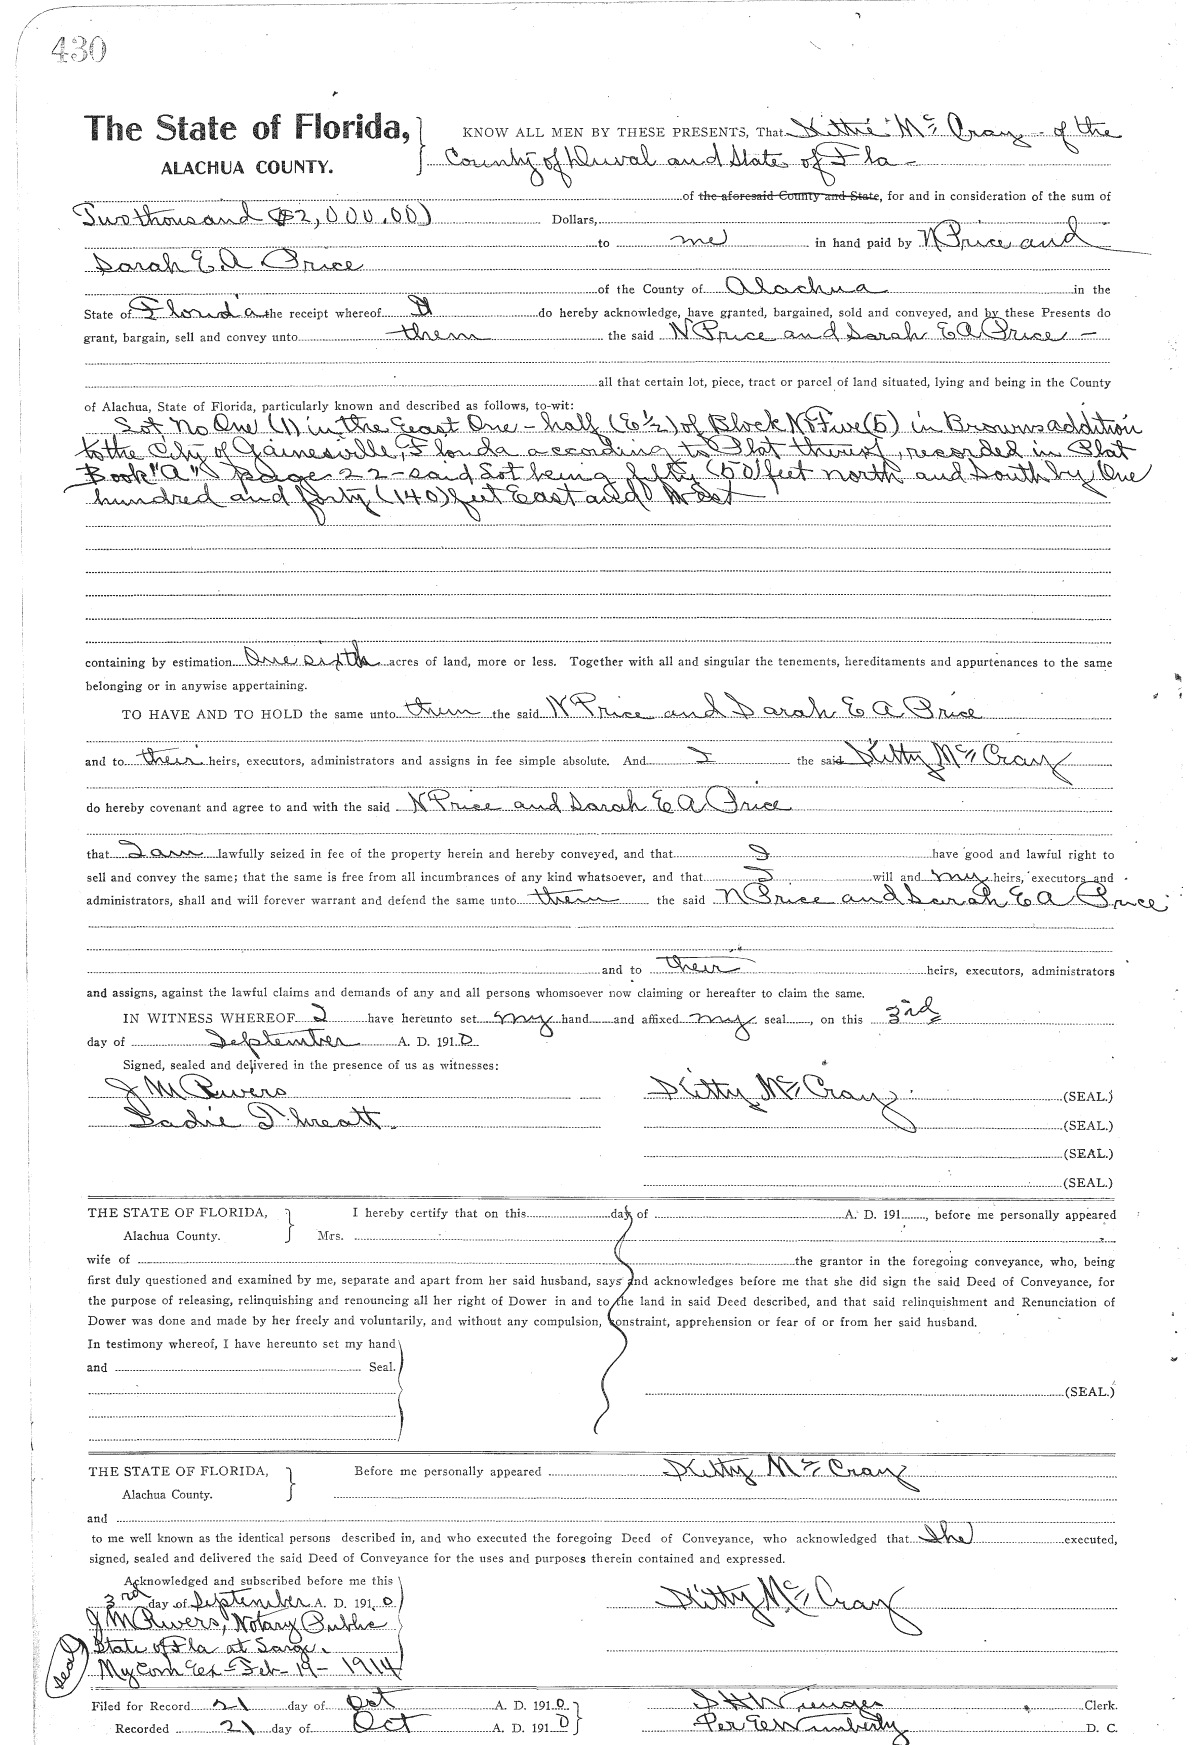 430
The State of Florida, } KNOW ALL MEN BY THESE PRESENTS, That Kittie McCray - of the
ALACHUA COUNTY. County of Duval and State of Fla -
of the aforesaid County and State, for and in consideration of the sum of
Two thousand ($2,000.00) Dollars,
to me in hand paid by N Price and
Sarah E. A Price
of the County of Alachua in the
State of Florida the receipt whereof I do hereby acknowledge, have granted, bargained, sold and conveyed, and by these Presents do
grant, bargain, sell and convey unto them the said N Price and Sarah E A Price -
all that certain lot, piece, tract or parcel of land situated, lying and being in the County
of Alachua, State of Florida, particularly known and described as follows, to-wit:
Lot No One (1) in the East One-half (E½) of Block No Five (5) in Browns addition
to the City of Gainesville, Florida according to Plat thereof, recorded in Plat
Book "A" Page 22 - said Lot being fifty (50) feet north and South by One
hundred and forty (140) feet East and West
containing by estimation One sixth acres of land, more or less. Together with all and singular the tenements, hereditaments and appurtenances to the same
belonging or in anywise appertaining.
TO HAVE AND TO HOLD the same unto them the said N Price and Sarah E A Price
and to their heirs, executors, administrators and assigns in fee simple absolute. And I the said Kitty McCray
do hereby covenant and agree to and with the said N Price and Sarah E A Price
that I am lawfully seized in fee of the property herein and hereby conveyed, and that I have good and lawful right to
sell and convey the same; that the same is free from all incumbrances of any kind whatsoever, and that I will and my heirs, executors and
administrators, shall and will forever warrant and defend the same unto them the said N Price and Sarah E A Price
and to their heirs, executors, administrators
and assigns, against the lawful claims and demands of any and all persons whomsoever now claiming or hereafter to claim the same.
IN WITNESS WHEREOF I have hereunto set my hand and affixed my seal, on this 3rd
day of September A. D. 1910
Signed, sealed and delivered in the presence of us as witnesses:
J M Rivers Kitty McCray (SEAL.)
Sadie Threatt. (SEAL.)
(SEAL.)
(SEAL.)
THE STATE OF FLORIDA, } I hereby certify that on this day of A. D. 191, before me personally appeared
Alachua County. Mrs.
wife of the grantor in the foregoing conveyance, who, being
first duly questioned and examined by me, separate and apart from her said husband, says and acknowledges before me that she did sign the said Deed of Conveyance, for
the purpose of releasing, relinquishing and renouncing all her right of Dower in and to the land in said Deed described, and that said relinquishment and Renunciation of
Dower was done and made by her freely and voluntarily, and without any compulsion, constraint, apprehension or fear of or from her said husband.
In testimony whereof, I have hereunto set my hand
and Seal.
(SEAL.)
THE STATE OF FLORIDA, } Before me personally appeared Kitty McCray
Alachua County.
and
to me well known as the identical persons described in, and who executed the foregoing Deed of Conveyance, who acknowledged that She executed,
signed, sealed and delivered the said Deed of Conveyance for the uses and purposes therein contained and expressed.
Acknowledged and subscribed before me this
3rd day of September A. D. 1910 Kitty McCray
J M Rivers, Notary Public
State of Fla at Large.
Seal My Com Ex - Feb - 19 - 1914
Filed for Record 21 day of Oct A. D. 1910 Clerk.
Recorded 21 day of Oct A. D. 1910 Per E Wimberly D. C.